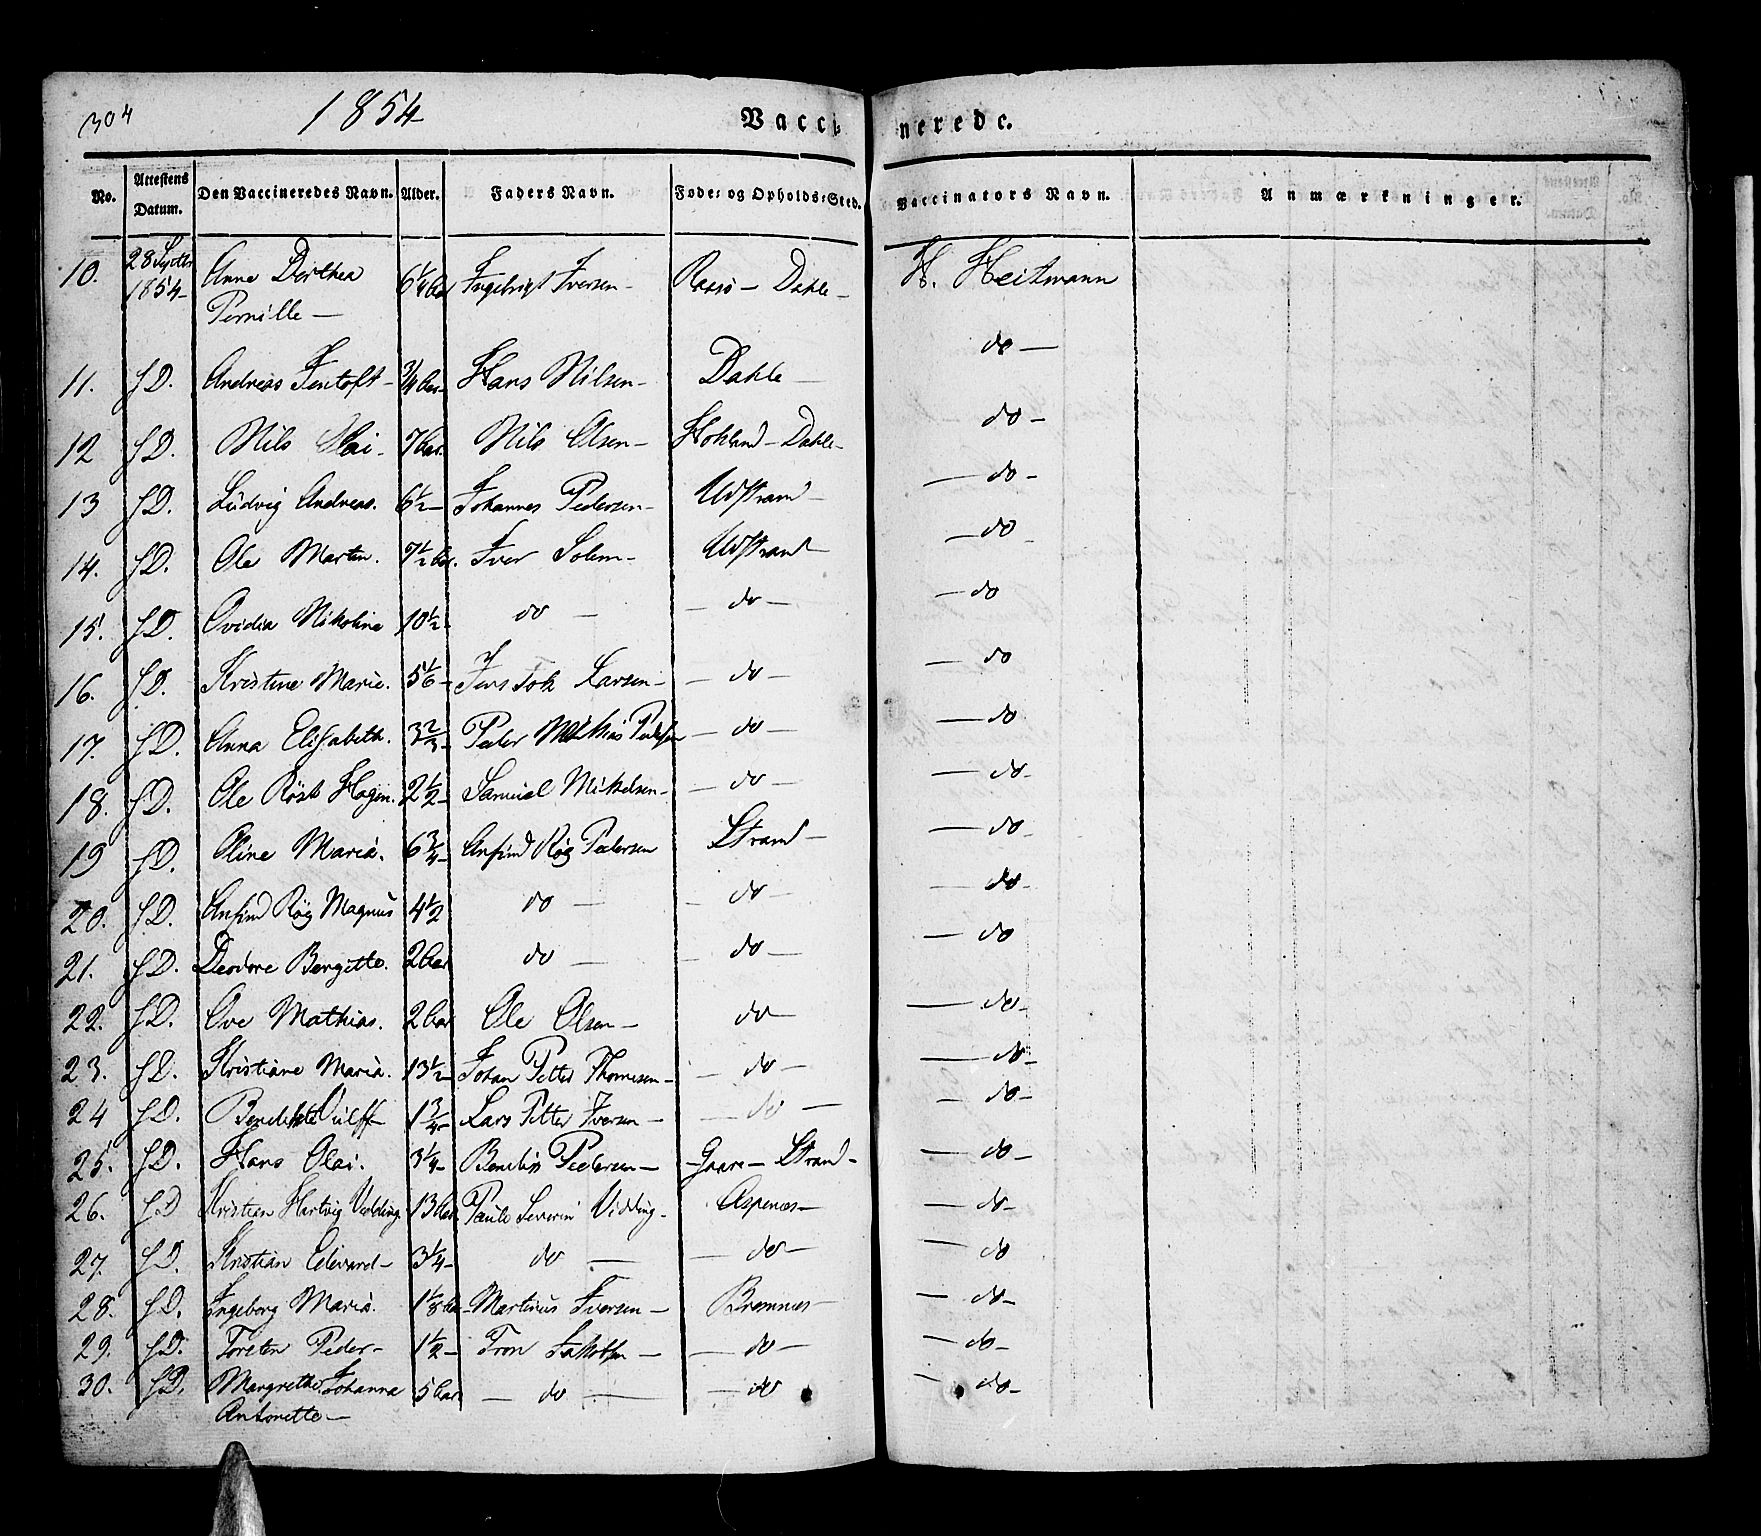 304 1854 Vaccinerede.
No. Attestens Datum. Den Vaccineredes Navn. Alder. Faders Navn. Føde- og Opholds-Sted. Vaccinators Navn. Anmærkninger.
10. 28 Septbr 1854 Anna Dorthea Pernille — 6 1/4 Ingebrigt Iversen — Dahle — H. Heitmann
11. S.D. Andreas Jentoft — 3/4 Hans Nilsen — Dahle — do —
12 S.D. Nils Olai — 7 Nils Olsen — Dahle — do —
13 S.D. Ludvig Andreas. 6 1/2 — Johannes Pedersen — Udstrand — — do —
14. S.D. Ole Martin. 7 1/2 Iver Solem — Udstrand — — do
15. S.D. Ovidia Nikoline 10 1/2 do — — do — — do
16. S.D. Kristine Marie. 5 1/6 — Jens Joh Larsen — — do — — do
17. S.D. Anna Elisabeth. 3 2/3 — Peder Mathias Pedersen — do — — do
18. S.D. Ole Röst Hagen. 2 1/2 — Samuel Mikkelsen — — do — — do —
19 S.D. Oline Maria. 6 3/4 — Anfind Røg Pedersen Strand — — do —
20. S.D. Anfind Røg Magnus 4 1/2 do — — do — — do —
21. S.D. Deodore Bergitte. 2 do — — do — — do
22. S.D. Ove Mathias. 2 Ole Olsen — do — — do —
23. S.D. Kristiane Maria. 13 1/2 — Johan Petter Thomesen — — do — — do —
24 S.D. 1 3/4 — Lars Petter Iversen — — do — — do —
25. S.D. Hans Olai. 3 1/4 — Pedersen — Gaare — Strand — — do —
26. S.D Kristian Hartvig 13 Paul Severin Vidding — Aspenæs — — do —
27. S.D. Kristian Edevard — 3 1/4 — do — — do — — do
28. S.D. Ingeborg Maria. 1 1/8 — Martinus Iversen — Bremnes — — do —
29. S.D. Torsten Peder — 1 1/2 — Tron Jakobsen — — do — — do —
30. S.D. Margrethe Johanna Antonette — 5 — do — — do — do —